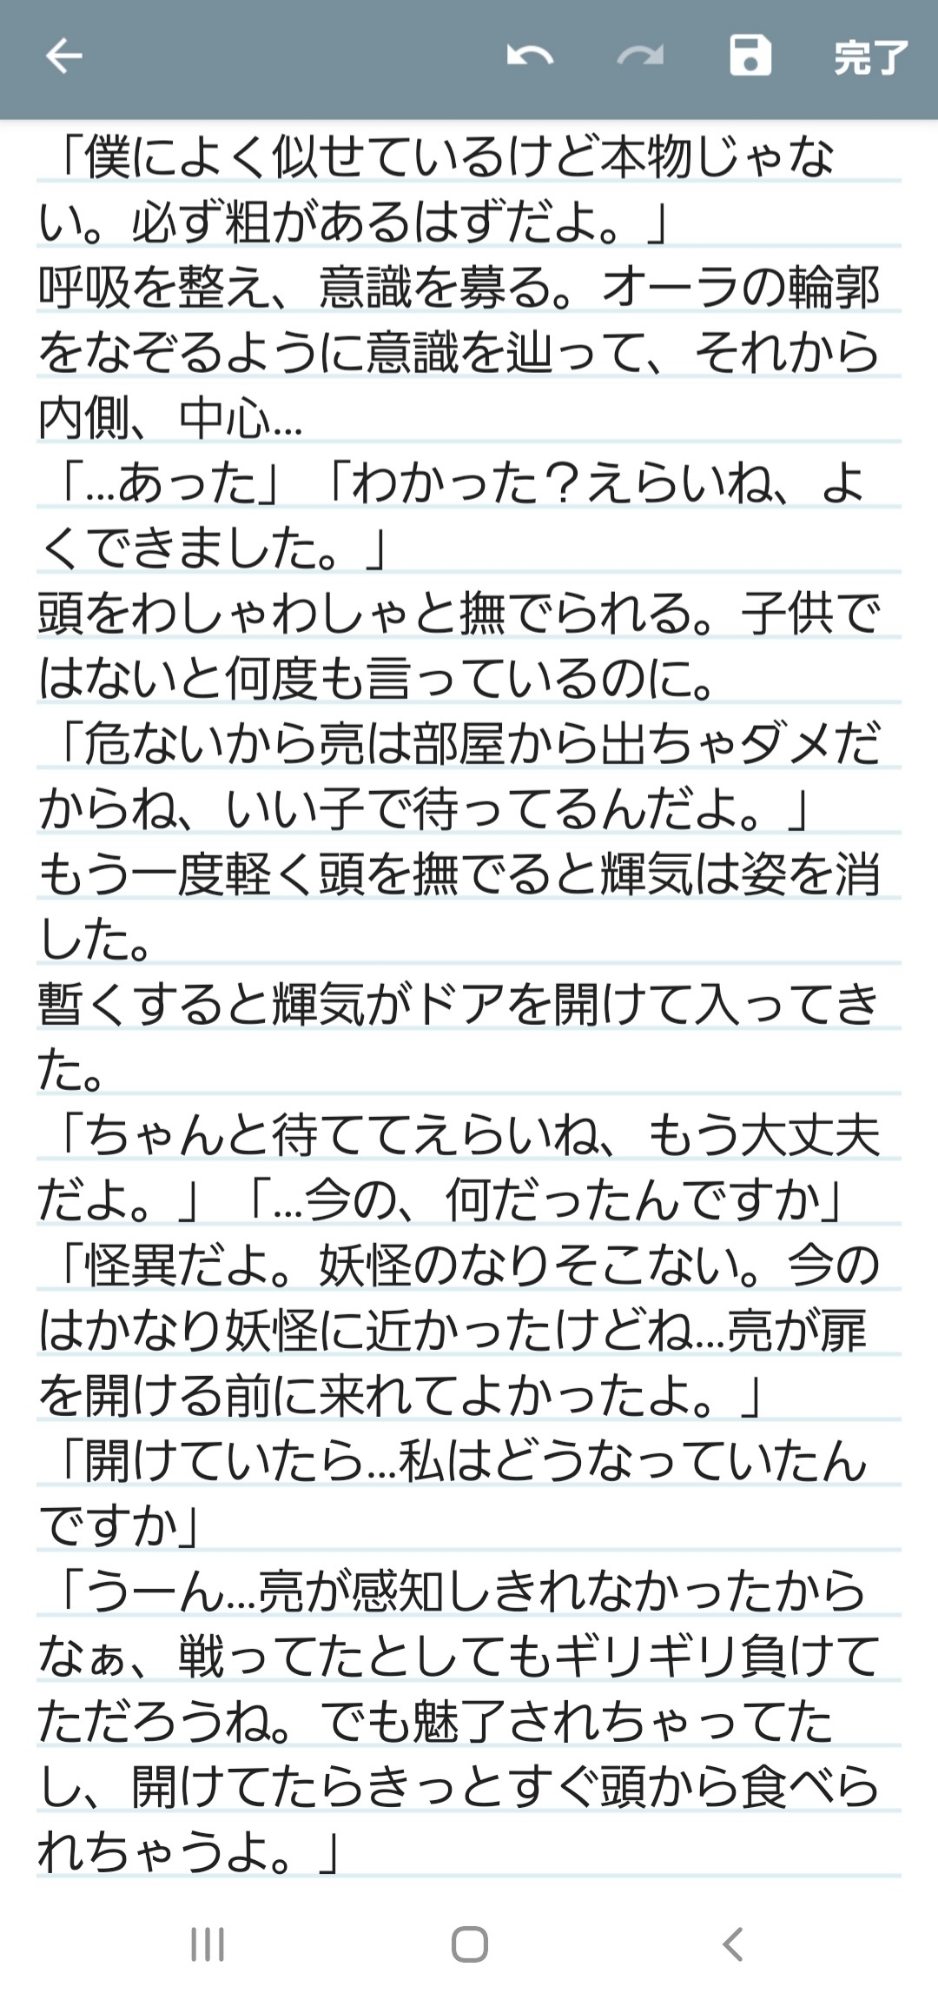 完了
「僕によく似せているけど本物じゃな
い。必ず粗があるはずだよ。」
呼吸を整え、意識を募る。オーラの輪郭
をなぞるように意識を辿って、それから
内側、中心...
「...あった」「わかった？えらいね、よ
くできました。」
頭をわしゃわしゃと撫でられる。子供で
はないと何度も言っているのに。
「危ないから亮は部屋から出ちゃダメだ
からね、いい子で待ってるんだよ。」
もう一度軽く頭を撫でると輝気は姿を消
した。
暫くすると輝気がドアを開けて入ってき
た。
「ちゃんと待ててえらいね、もう大丈夫
だよ。」「...今の、何だったんですか」
「怪異だよ。妖怪のなりそこない。今の
はかなり妖怪に近かったけどね...亮が扉
を開ける前に来れてよかったよ。」
「開けていたら...私はどうなっていたん
ですか」
「うーん...亮が感知しきれなかったから
なぁ、戦ってたとしてもギリギリ負けて
ただろうね。でも魅了されちゃってた
し、開けてたらきっとすぐ頭から食べら
れちゃうよ。」